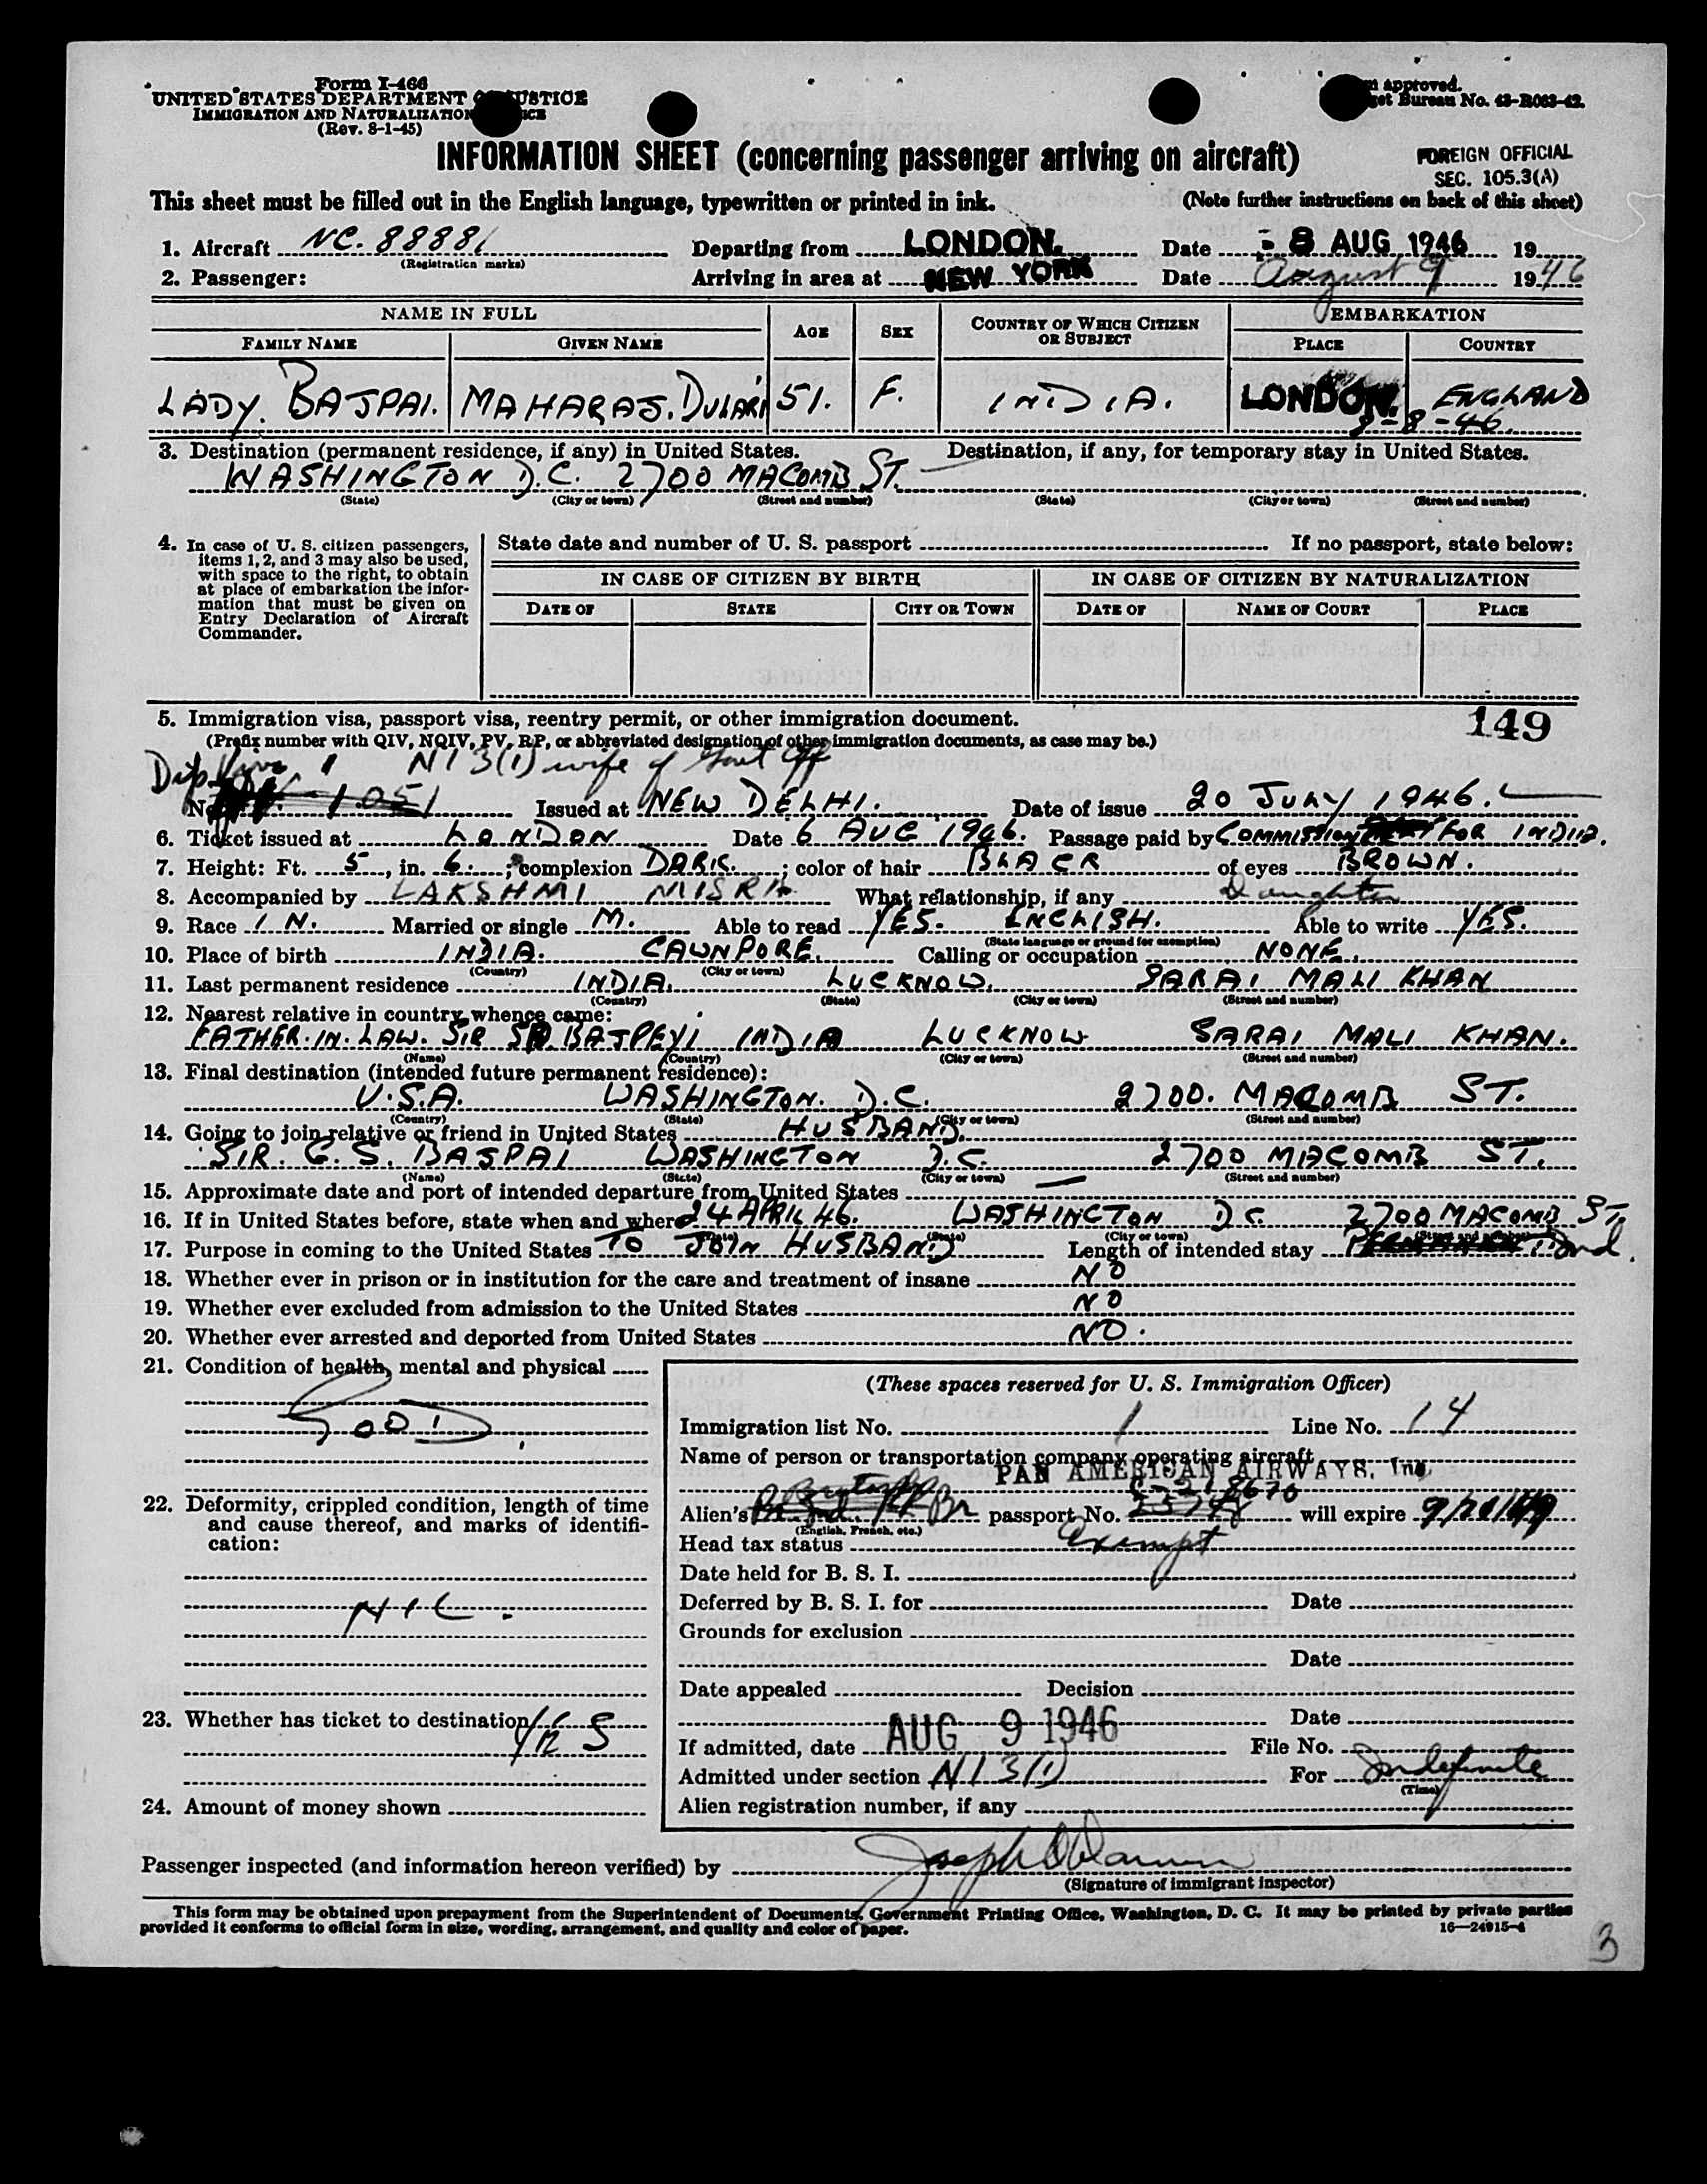 Form I-466
UNITED STATES DEPARTMENT OF JUSTICE
IMMIGRATION AND NATURALIZATION
(Rev. 8-1-45)
approved.
Bureau No. 43-R063-42.
INFORMATION SHEET (concerning passenger arriving on aircraft)
FOREIGN OFFICIAL
SEC. 105.3(A)
This sheet must be filled out in the English language, typewritten or printed in ink.
(Note further instructions on back of this sheet)
1. Aircraft NC. 88881 Departing from LONDON. Date 8 AUG 1946 19
(Registration marks)
2. Passenger: Arriving in area at NEW YORK Date August 9 1946
NAME IN FULL AGE SEX COUNTRY OF WHICH CITIZEN OR SUBJECT EMBARKATION
FAMILY NAME GIVEN NAME PLACE COUNTRY
LADY. BAJPAI. MAHARAJ. DULARI 51. F. INDIA. LONDON. ENGLAND
8-8-46.
3. Destination (permanent residence, if any) in United States. Destination, if any, for temporary stay in United States.
WASHINGTON D.C. 2700 MACOMB ST.
(State) (City or town) (Street and number) (State) (City or town) (Street and number)
4. In case of U. S. citizen passengers, items 1, 2, and 3 may also be used, with space to the right, to obtain at place of embarkation the information that must be given on Entry Declaration of Aircraft Commander.
State date and number of U. S. passport If no passport, state below:
IN CASE OF CITIZEN BY BIRTH IN CASE OF CITIZEN BY NATURALIZATION
DATE OF STATE CITY OR TOWN DATE OF NAME OF COURT PLACE
5. Immigration visa, passport visa, reentry permit, or other immigration document. 149
(Prefix number with QIV, NQIV, PV, RP, or abbreviated designation of other immigration documents, as case may be.)
Dip. Visa 1 N1 3(1) wife of Govt Off
No. 1051 Issued at NEW DELHI. Date of issue 20 JULY 1946.
6. Ticket issued at LONDON Date 6 AUG 1946. Passage paid by COMMISSION FOR INDIA.
7. Height: Ft. 5, in. 6.; complexion DARK.; color of hair BLACK of eyes BROWN.
8. Accompanied by LAKSHMI MISRA. What relationship, if any Daughter
9. Race IN. Married or single M. Able to read YES. ENGLISH. Able to write YES.
(State language or ground for exemption)
10. Place of birth INDIA. CAWNPORE. Calling or occupation NONE.
(Country) (City or town)
11. Last permanent residence INDIA. LUCKNOW. SARAI MALI KHAN
(Country) (State) (City or town) (Street and number)
12. Nearest relative in country whence came:
FATHER. IN. LAW. SIR BAJPEYI INDIA LUCKNOW SARAI MALI KHAN.
(Name) (Country) (City or town) (Street and number)
13. Final destination (intended future permanent residence):
U.S.A. WASHINGTON. D.C. 2700. MACOMB ST.
(Country) (State) (City or town) (Street and number)
14. Going to join relative or friend in United States HUSBAND.
SIR. G. S. BAJPAI WASHINGTON D.C. 2700 MACOMB ST.
(Name) (State) (City or town) (Street and number)
15. Approximate date and port of intended departure from United States —
16. If in United States before, state when and where 24 APRIL 46. WASHINGTON D C. 2700 MACOMB ST.
(City or town) (Street and number)
17. Purpose in coming to the United States TO JOIN HUSBAND Length of intended stay Ind.
18. Whether ever in prison or in institution for the care and treatment of insane NO
19. Whether ever excluded from admission to the United States NO
20. Whether ever arrested and deported from United States NO.
21. Condition of health, mental and physical
GOOD.
22. Deformity, crippled condition, length of time and cause thereof, and marks of identification:
NIL.
23. Whether has ticket to destination YES
24. Amount of money shown
(These spaces reserved for U. S. Immigration Officer)
Immigration list No. 1 Line No. 14
Name of person or transportation company operating aircraft
PAN AMERICAN AIRWAYS, Inc.
Alien's Br passport No. will expire
(English, French, etc.)
Head tax status Exempt
Date held for B. S. I.
Deferred by B. S. I. for Date
Grounds for exclusion
Date
Date appealed Decision
Date
If admitted, date AUG 9 1946 File No.
Admitted under section N1 3(1) For Indefinite
(Time)
Alien registration number, if any
Passenger inspected (and information hereon verified) by Joseph
(Signature of immigrant inspector)
This form may be obtained upon prepayment from the Superintendent of Documents, Government Printing Office, Washington, D. C. It may be printed by private parties
provided it conforms to official form in size, wording, arrangement, and quality and color of paper. 16—24915-4
3